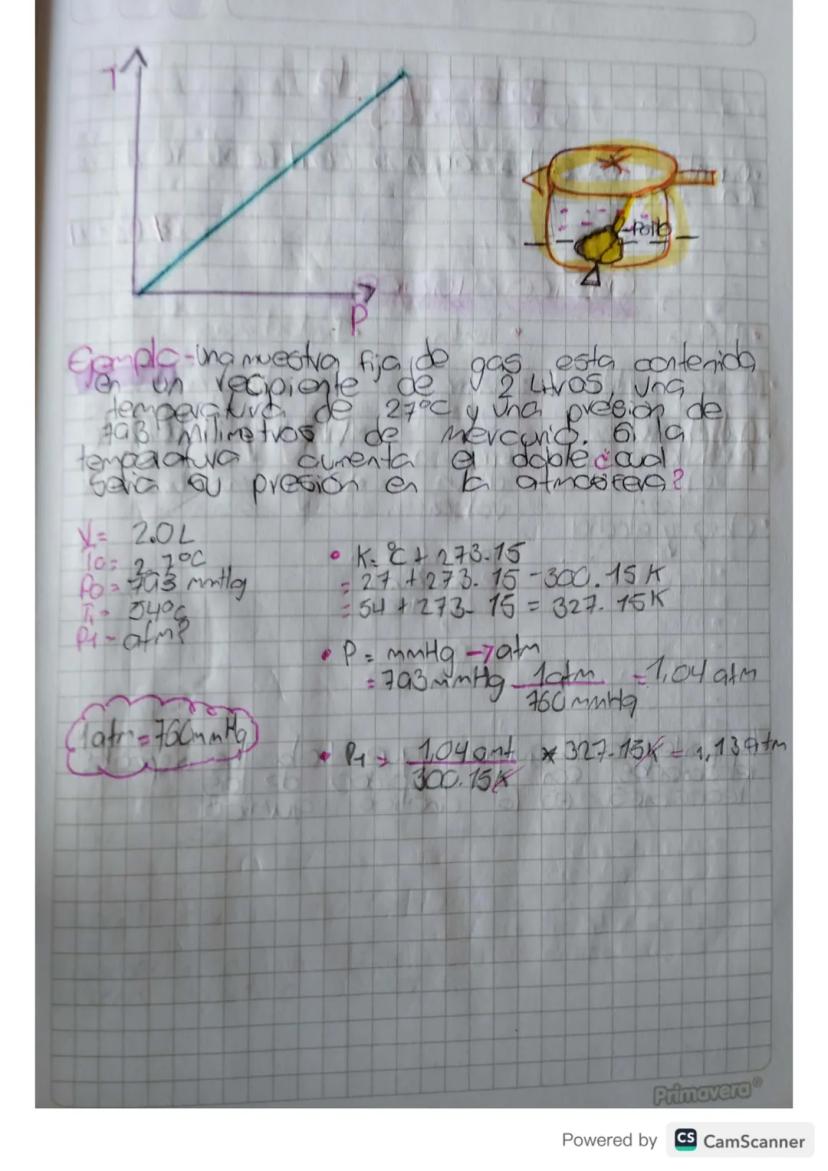 T
P
Pollo
Ejemplo - Una muestra fija de gas esta contenida
en un recipiente de 2 Litros, una
temperatura de 27°C y una presion de
793 milimetros de mercurio. Si la
temperatura aumenta el doble ¿cual
seria su presión en la atmosfera?
V= 2.0L
To= 2.7°C
Po= 793 mmHg
T1= 54°C
P1= atm?
1atm = 760mmHg
• K: °C + 273.15
= 27 + 273.15 = 300.15K
= 54 + 273.15 = 327.15K
• P = mmHg → atm
= 793mmHg 1atm = 1,04 atm
760mmHg
• P1 = 1,04 amt * 327.15K = 1,13 Atm
300.15K
Primavera®
Powered by CS CamScanner